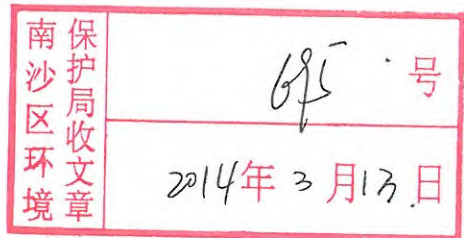 南沙区环境
保护局收文章
695号
2014年3月13日